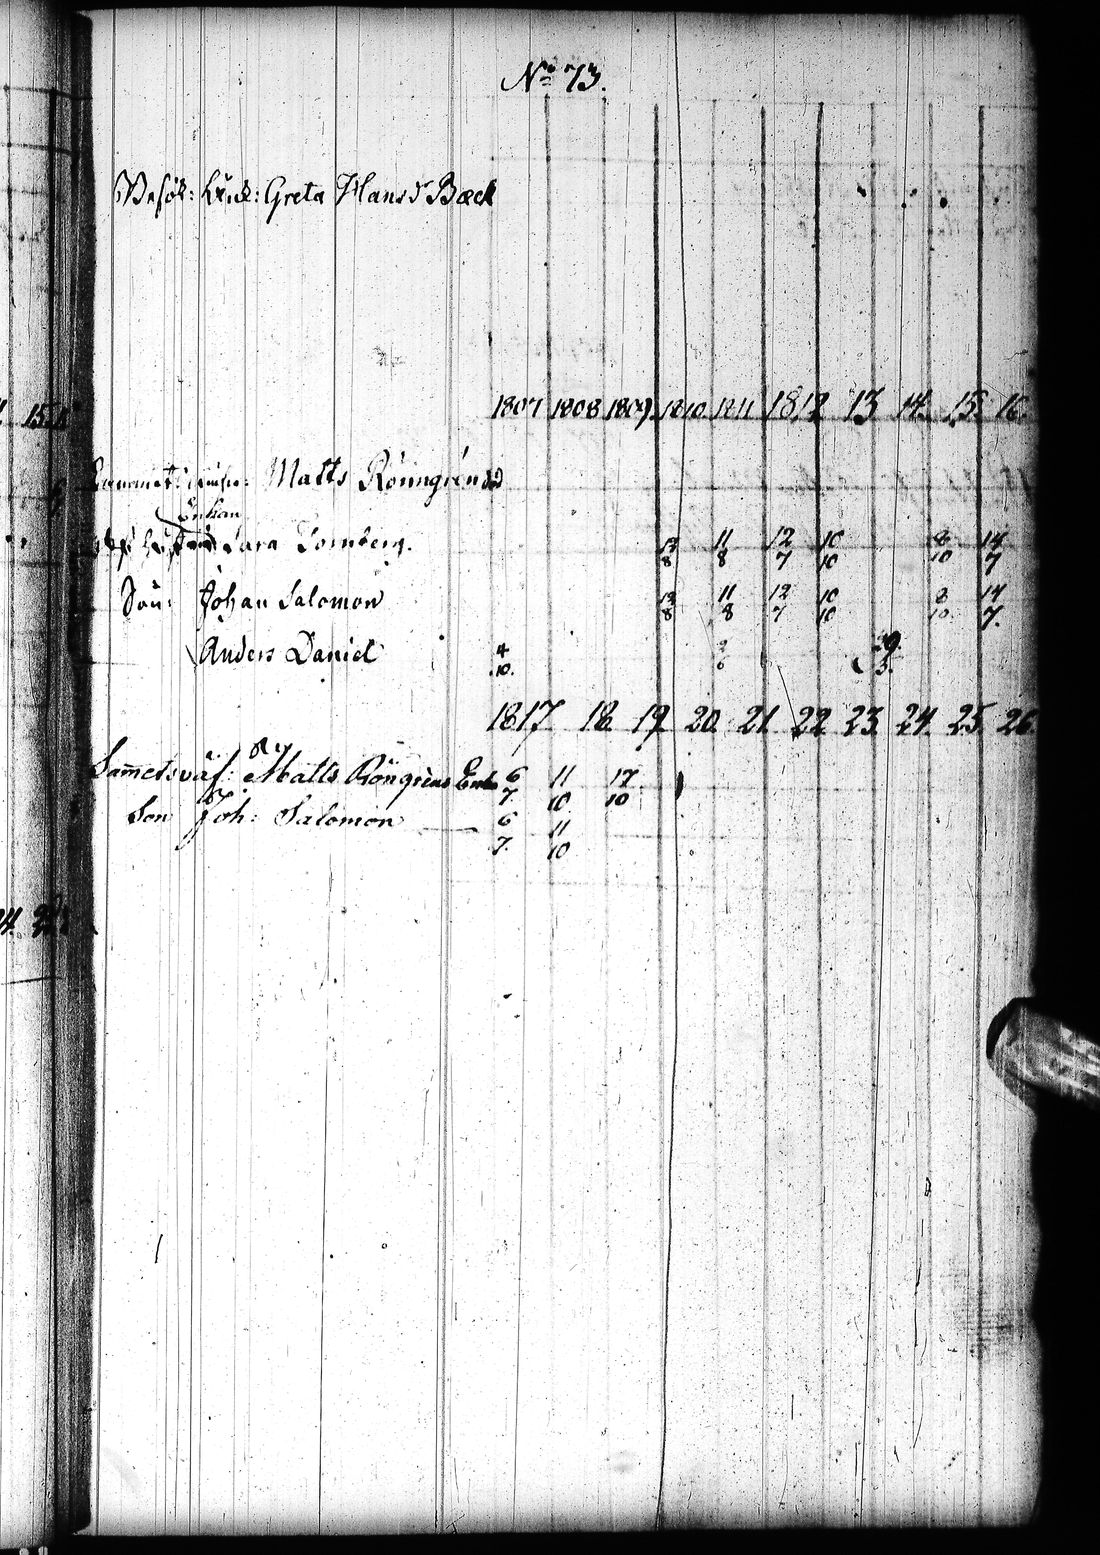 No 73.
Greta Hans dr Bæck
1807 1808 1809 1810 1811 1812 13 14 15 16.
Matts Rönngrén död
Enkan
Sara Tornberg. 12/8 11/8 12/7 10/10 8/10 14/7
Son: Johan Salomon 12/8 11/8 12/7 10/10 8/10 14/7.
Anders Daniel 4/10.
1817 18 19 20 21 22 23 24 25 26
Sametsväf: Matts Röngréns Enk 6/7. 11/10 17/10
Son Joh: Salomon 6/7. 11/10